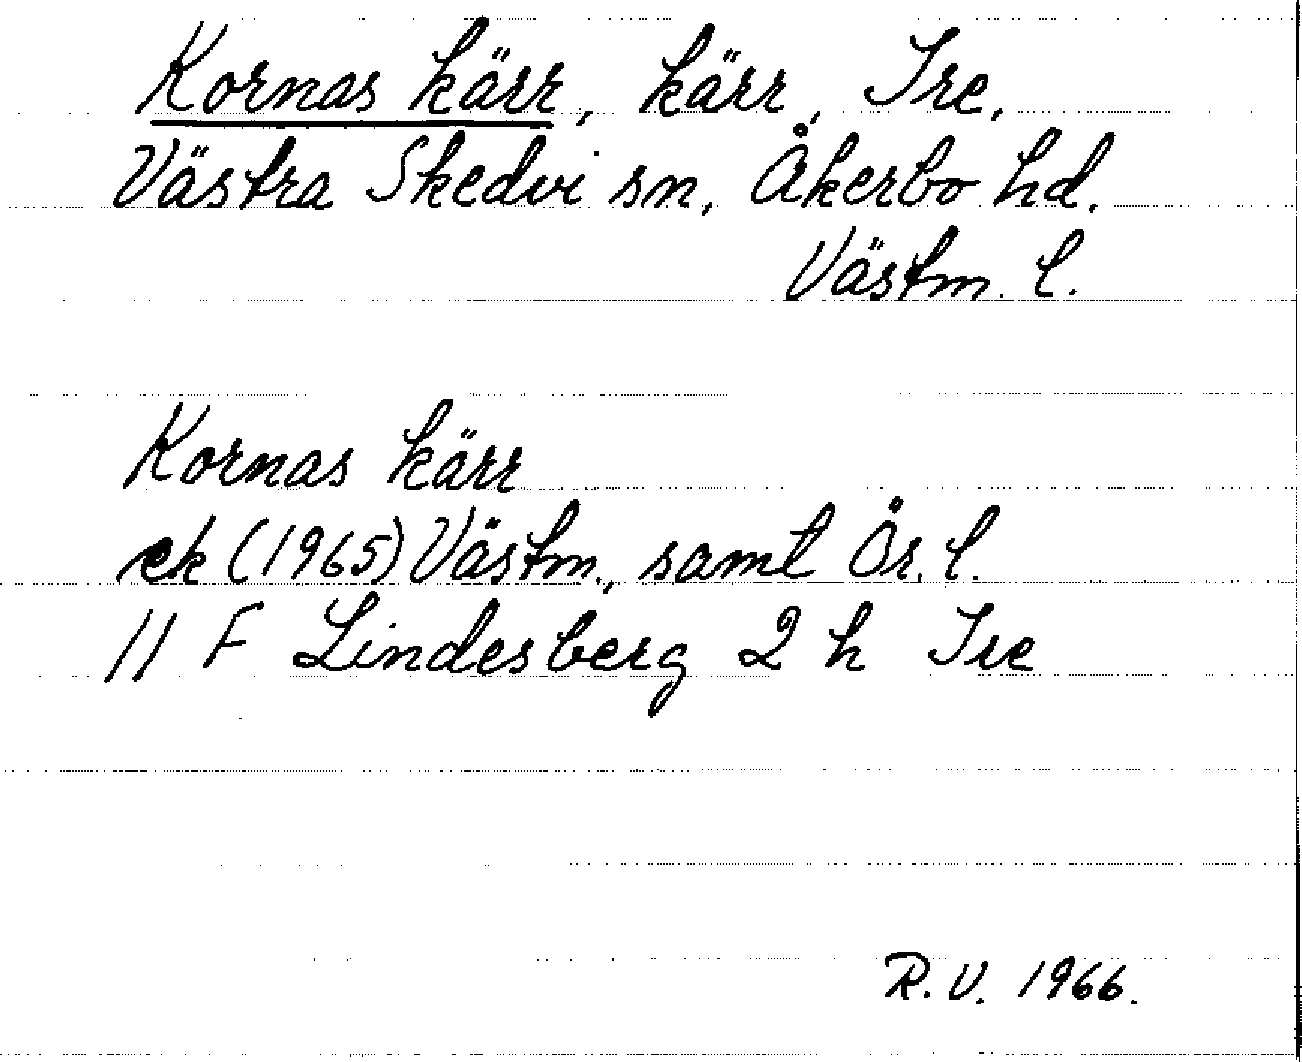 Kornas kärr, kärr, Tre,
Västra Skedvi sn, Åkerbo hd.
Västm. l.
Kornas kärr
ek (1965) Västm., samt Ör. l.
11 F Lindesberg 2 h Tre
R. V. 1966.